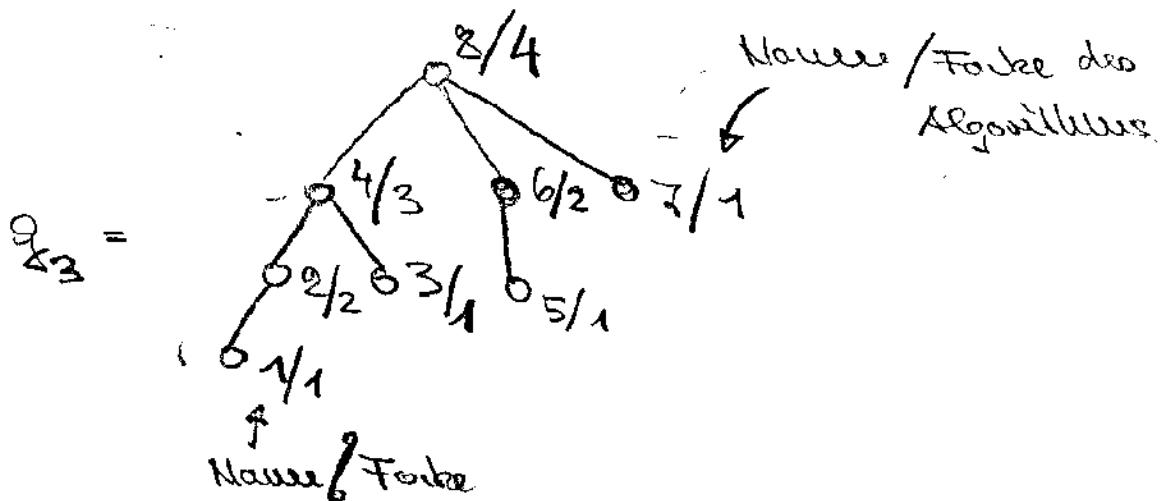 8/4
Name/Farbe des
Algorithmus.
4/3
6/2
7/1
2/2
3/1
5/1
1/1
Name/Farbe